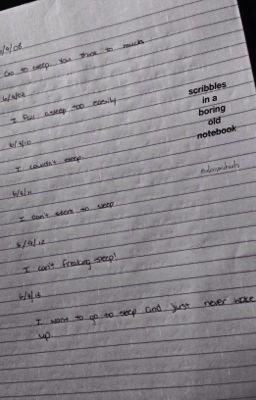 Go to sleep. You think to much.
I fall asleep too easily
scribbles
in a
boring
old
notebook
I couldn't sleep.
I can't seem to sleep
I can't freaking sleep!
I want to go to sleep and just never wake
up.